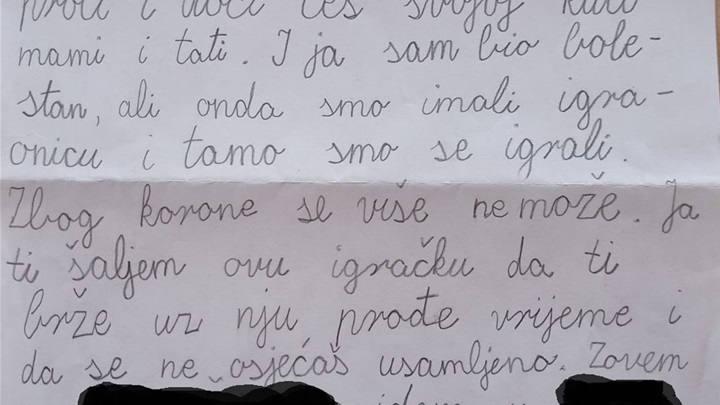 proći i doći ćeš svojoj kući
mami i tati. I ja sam bio bole-
stan, ali onda smo imali igra-
onicu i tamo smo se igrali.
Zbog korone se više nemože. Ja
ti šaljem ovu igračku da ti
brže uz nju prođe vrijeme i
da se ne osjećaš usamljeno. Zovem